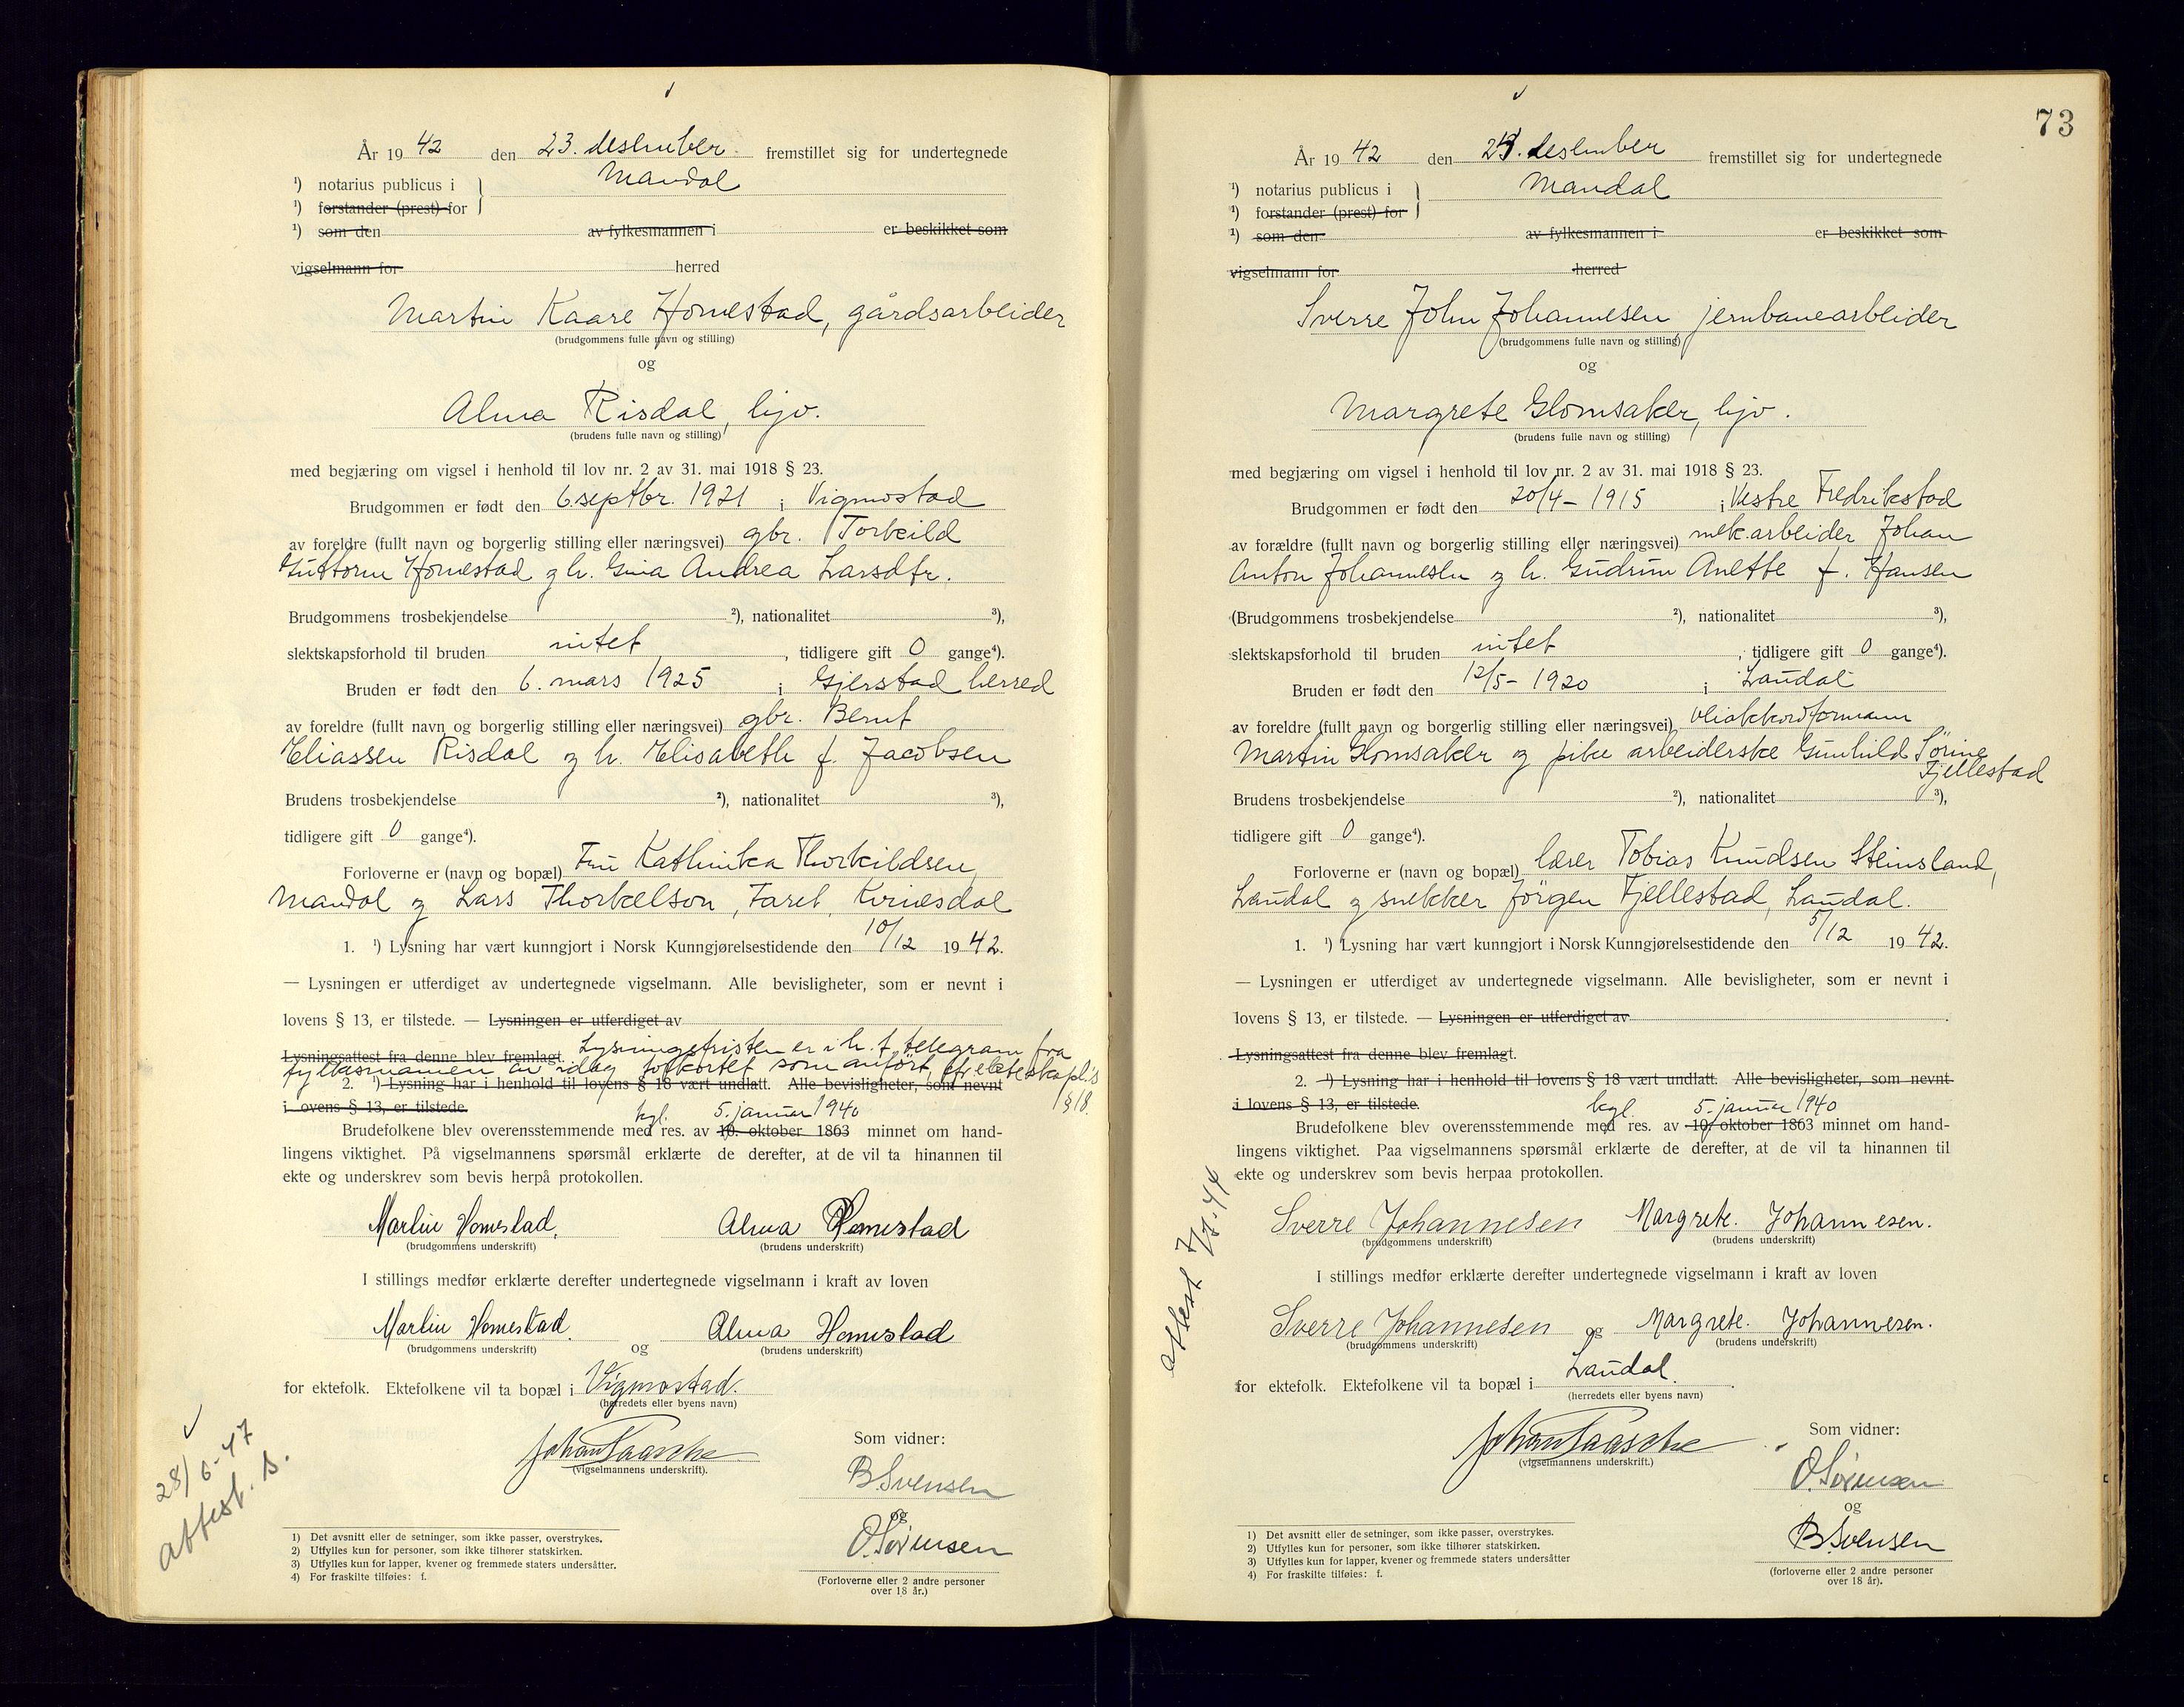 År 1942 den 23. desember fremstillet sig for undertegnede
¹) notarius publicus i Mandal
¹) forstander (prest) for
¹) som den av fylkesmannen i er beskikket som
vigselmann for herred
Martin Kaare Homestad, gårdsarbeider
(brudgommens fulle navn og stilling)
og
Alma Risdal, hjv.
(brudens fulle navn og stilling)
med begjæring om vigsel i henhold til lov nr. 2 av 31. mai 1918 § 23.
Brudgommen er født den 6. septbr. 1921 i Vigmostad
av foreldre (fullt navn og borgerlig stilling eller næringsvei) gbr. Torkild
Guttorm Homestad og h. Gina Andrea Larsdtr.
Brudgommens trosbekjendelse ²), nationalitet ³),
slektskapsforhold til bruden intet, tidligere gift 0 gange⁴).
Bruden er født den 6. mars 1925 i Gjerstad herred
av foreldre (fullt navn og borgerlig stilling eller næringsvei) gbr. Bernt
Eliassen Risdal og h. Elisabeth f. Jacobsen
Brudens trosbekjendelse ²), nationalitet ³),
tidligere gift 0 gange⁴).
Forloverne er (navn og bopæl) Fru Kathinka Thorkildsen,
Mandal og Lars Thorkelson, Faret, Kvinesdal
1. ¹) Lysning har vært kunngjort i Norsk Kunngjørelsestidende den 10/12 1942.
— Lysningen er utferdiget av undertegnede vigselmann. Alle bevisligheter, som er nevnt i
lovens § 13, er tilstede. — Lysningen er utferdiget av
Lysningsattest fra denne blev fremlagt. Lysningsfristen er i h. t. telegram fra
fylkesmannen av idag forkortet som anført, cfr. ekteskapsl.s
2. ¹) Lysning har i henhold til lovens § 18 vært undlatt. Alle bevisligheter, som nevnt
i lovens § 13, er tilstede. § 18.
kgl. 5. januar 1940
Brudefolkene blev overensstemmende med res. av 10. oktober 1863 minnet om hand-
lingens viktighet. På vigselmannens spørsmål erklærte de derefter, at de vil ta hinannen til
ekte og underskrev som bevis herpå protokollen.
Martin Homestad. Alma Homestad
(brudgommens underskrift) (brudens underskrift)
I stillings medfør erklærte derefter undertegnede vigselmann i kraft av loven
Martin Homestad. Alma Homestad
(brudgommens underskrift) og (brudens underskrift)
for ektefolk. Ektefolkene vil ta bopæl i Vigmostad.
(herredets eller byens navn)
Johan Paasche
(vigselmannens underskrift).
Som vidner:
B. Svensen
og
O. Sørensen
(Forloverne eller 2 andre personer
over 18 år.)
28/6-47
attest. s.
1) Det avsnitt eller de setninger, som ikke passer, overstrykes.
2) Utfylles kun for personer, som ikke tilhører statskirken.
3) Utfylles kun for lapper, kvener og fremmede staters undersåtter.
4) For fraskilte tilføies: f.
73
År 1942 den desember fremstillet sig for undertegnede
¹) notarius publicus i Mandal
¹) forstander (prest) for
¹) som den av fylkesmannen i er beskikket som
vigselmann for herred
Sverre John Johannesen, jernbanearbeider
(brudgommens fulle navn og stilling)
og
Margrete Glomsaker, hjv.
(brudens fulle navn og stilling)
med begjæring om vigsel i henhold til lov nr. 2 av 31. mai 1918 § 23.
Brudgommen er født den 20/4 - 1915 i Vestre Fredrikstad
av forældre (fullt navn og borgerlig stilling eller næringsvei) mek.arbeider Johan
Anton Johannesen og h. Gudrun Anette f. Hansen
(Brudgommens trosbekjendelse ²), nationalitet ³),
slektskapsforhold til bruden intet, tidligere gift 0 gange⁴).
Bruden er født den 12/5 - 1920 i Laudal
av foreldre (fullt navn og borgerlig stilling eller næringsvei) veiakkordformann
Martin Glomsaker og pike arbeiderske Gunhild Sørine
Fjellestad
Brudens trosbekjendelse ²), nationalitet ³),
tidligere gift 0 gange⁴).
Forloverne er (navn og bopæl) lærer Tobias Knudsen Steinsland,
Laudal og snekker Jørgen Fjellestad, Laudal.
1. ¹) Lysning har vært kunngjort i Norsk Kunngjørelsestidende den 5/12 1942.
— Lysningen er utferdiget av undertegnede vigselmann. Alle bevisligheter, som er nevnt i
lovens § 13, er tilstede. — Lysningen er utferdiget av
Lysningsattest fra denne blev fremlagt.
2. ¹) Lysning har i henhold til lovens § 18 vært undlatt. Alle bevisligheter, som nevnt
i lovens § 13, er tilstede.
kgl. 5. januar 1940
Brudefolkene blev overensstemmende med res. av 10. oktober 1863 minnet om hand-
lingens viktighet. Paa vigselmannens spørsmål erklærte de derefter, at de vil ta hinannen til
ekte og underskrev som bevis herpaa protokollen.
Sverre Johannesen Margrete. Johannesen.
(brudgommens underskrift) (brudens underskrift)
I stillings medfør erklærte derefter undertegnede vigselmann i kraft av loven
Sverre Johannesen og Margrete. Johannesen.
(brudgommens underskrift) (brudens underskrift)
for ektefolk. Ektefolkene vil ta bopæl i Laudal.
(herredets eller byens navn)
Johan Paasche
(vigselmannens underskrift.)
Som vidner:
O. Sørensen
og
B. Svensen
(forloverne eller 2 andre personer
over 18 år).
attest
1) Det avsnitt eller de setninger, som ikke passer, overstrykes.
2) Utfylles kun for personer, som ikke tilhører statskirken.
3) Utfylles kun for lapper, kvener og fremmede staters undersåtter
4) For fraskilte tilføies: f.